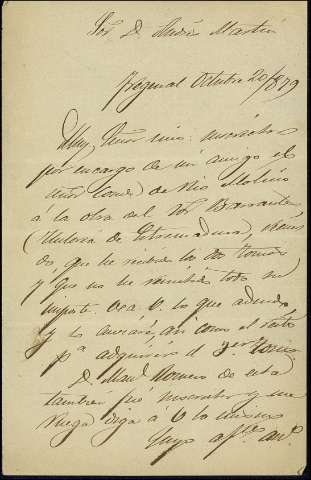 Sor. D. Andrés Martín
Fregenal Octubre 20/879
Muy Señor mio:
por encargo de mi amigo el
Señor Conde de Rio Molino
á la obra del Sor. Barrantes
(Historia de Extremadura),
do que he recibido los dos tomos
y que no he remitido todo su
importe. Vea V. lo que adeudo
y lo enviaré, así como el resto
pa. adquirir el 3er. tomo.
D. Manl. Romero de esta
tambien fué suscritor y me
ruega diga á V. lo mismo
Suyo afmo.